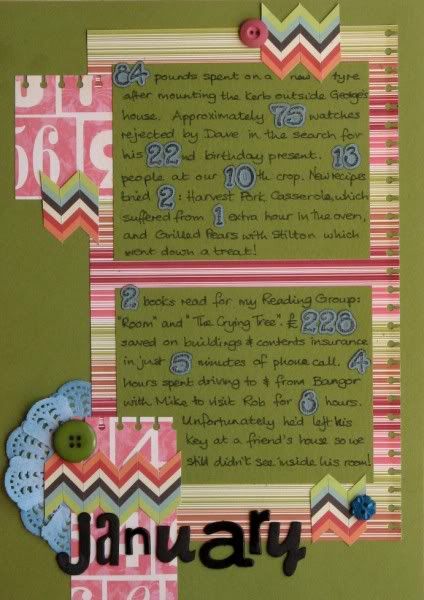 84 pounds spent on a new tyre
after mounting the kerb outside George's
house. Approximately 75 watches
rejected by Dave in the search for
his 22nd birthday present. 13
people at our 10th crop. New recipes
tried 2: Harvest Pork Casserole, which
suffered from 1 extra hour in the oven,
and Grilled Pears with Stilton which
went down a treat!
2 books read for my Reading Group:
"Room" and "The Crying Tree". £228
saved on buildings & contents insurance
in just 5 minutes of phone call. 4
hours spent driving to & from Bangor
with Mike to visit Rob for 3 hours.
Unfortunately he'd left his
key at a friend's house so we
still didn't see inside his room!
january
56